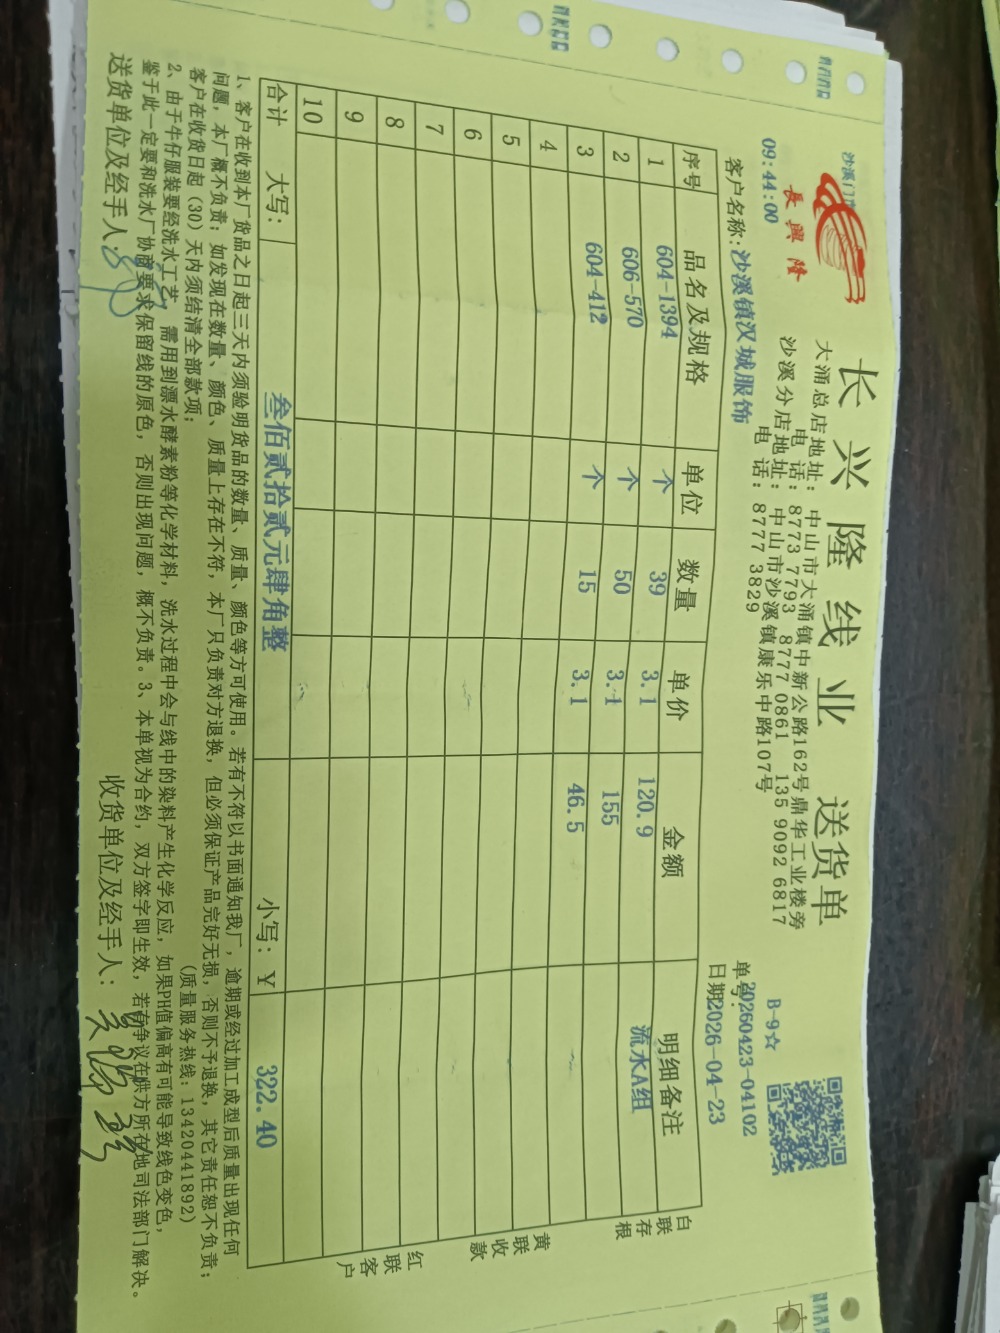 沙溪门市
長興隆
09:44:00
长兴隆线业 送货单
大涌总店地址：中山市大涌镇中新公路162号鼎华工业楼旁
电 话：8773 7793 8777 0861 135 9092 6817
沙溪分店地址：中山市沙溪镇康乐中路107号
电 话：8777 3829
B-9☆
单号：20260423-04102
客户名称：沙溪镇汉城服饰
日期2026-04-23
序号 品名及规格 单位 数量 单价 金额 明细备注
1 604-1394 个 39 3.1 120.9 流水A组
2 606-570 个 50 3.1 155
3 604-412 个 15 3.1 46.5
4
5
6
7
8
9
10
合计 大写： 叁佰贰拾贰元肆角整 小写：Y 322.40
白联存根
黄联收款
红联客户
1、客户在收到本厂货品之日起三天内须验明货品的数量、质量、颜色等方可使用。若有不符以书面通知我厂，逾期或经过加工成型后质量出现任何
问题，本厂概不负责；如发现在数量、颜色、质量上存在不符，本厂只负责对方退换，但必须保证产品完好无损，否则不予退换，其它责任恕不负责；
客户在收货日起（30）天内须结清全部款项； （质量服务热线：13420441892）
2、由于牛仔服装要经洗水工艺，需用到漂水酵素粉等化学材料，洗水过程中会与线中的染料产生化学反应，如果PH值偏高有可能导致线色变色，
鉴于此一定要和洗水厂协商要求保留线的原色，否则出现问题，概不负责。3、本单视为合约，双方签字即生效，若有争议在供方所在地司法部门解决。
送货单位及经手人： 收货单位及经手人：